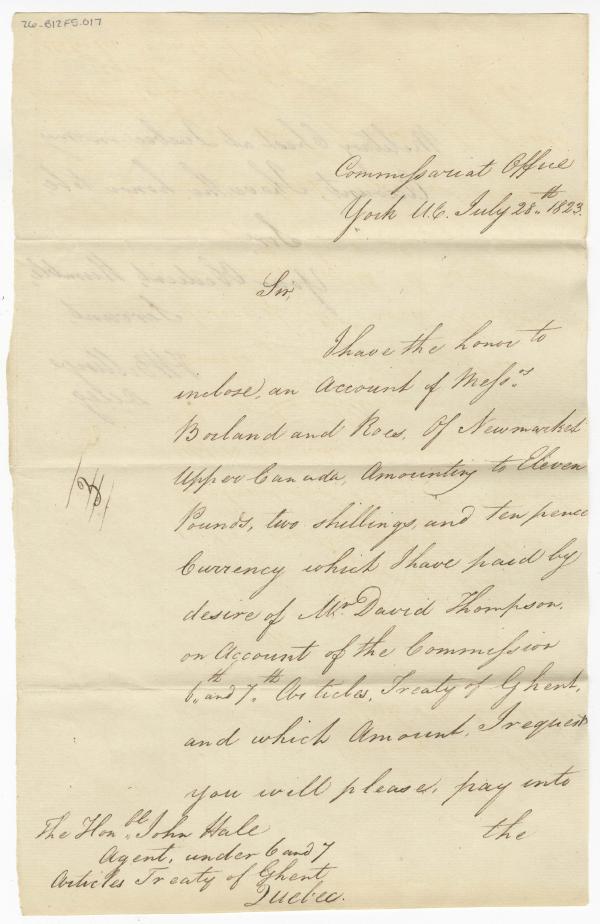 26-B12F5.017
Commissariat Office
York U.C. July 28.th 1823.
Sir,
I have the honor to
inclose, an Account of Mess.rs
Borland and Roes, Of Newmarket
Upper Canada, Amounting to Eleven
Pounds, two shillings, and ten pence
Currency which I have paid by
desire of Mr. David Thompson,
on Account of the Commission
6.th and 7.th Articles, Treaty of Ghent,
and which Amount, I request
you will please, pay into
the
The Hon.ble John Hale
Agent, under 6 and 7
Articles Treaty of Ghent
Quebec.